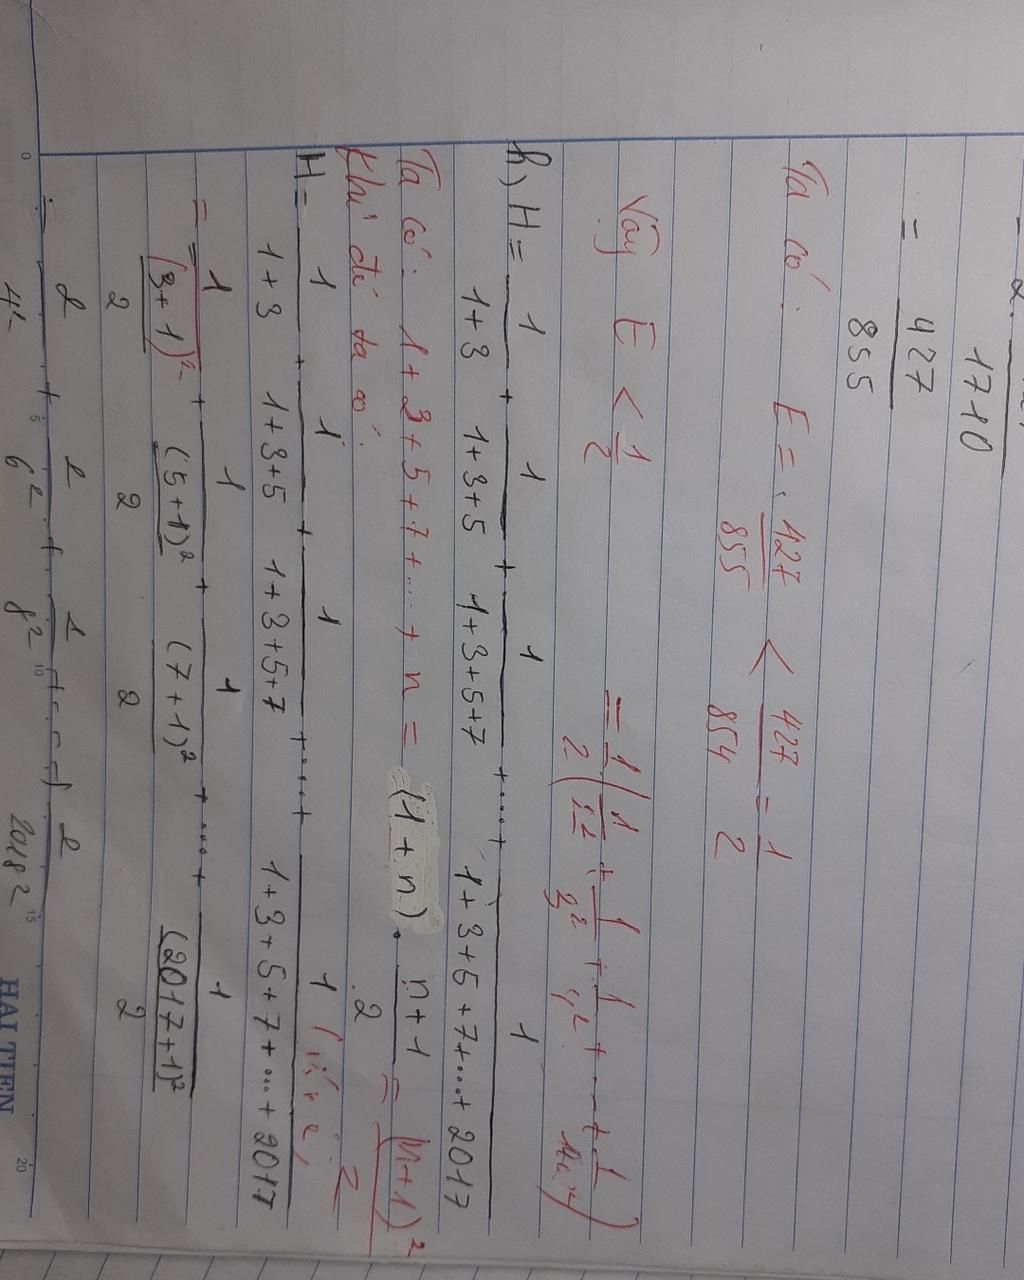 1710
= 427/855
Ta có: E = 427/855 < 427/854 = 1/2
Vậy E < 1/2
= 1/2 (1/2² + 1/3² + 1/4² + ... + 1/
h) H = 1/(1+3) + 1/(1+3+5) + 1/(1+3+5+7) + .... + 1/(1+3+5+7+...+2017)
Ta có: 1+3+5+7+...+n = (1+n). (n+1)/2 = (n+1)²/2
Khi đó ta có:
H = 1/(1+3) + 1/(1+3+5) + 1/(1+3+5+7) + ..... + 1/(1+3+5+7+...+2017)
= 1/((3+1)²/2) + 1/((5+1)²/2) + 1/((7+1)²/2) + .... + 1/((2017+1)²/2)
= 2/4² + 2/6² + 2/8² + ... + 2/2018²
0 5 10 15 HẢI TIẾN 20